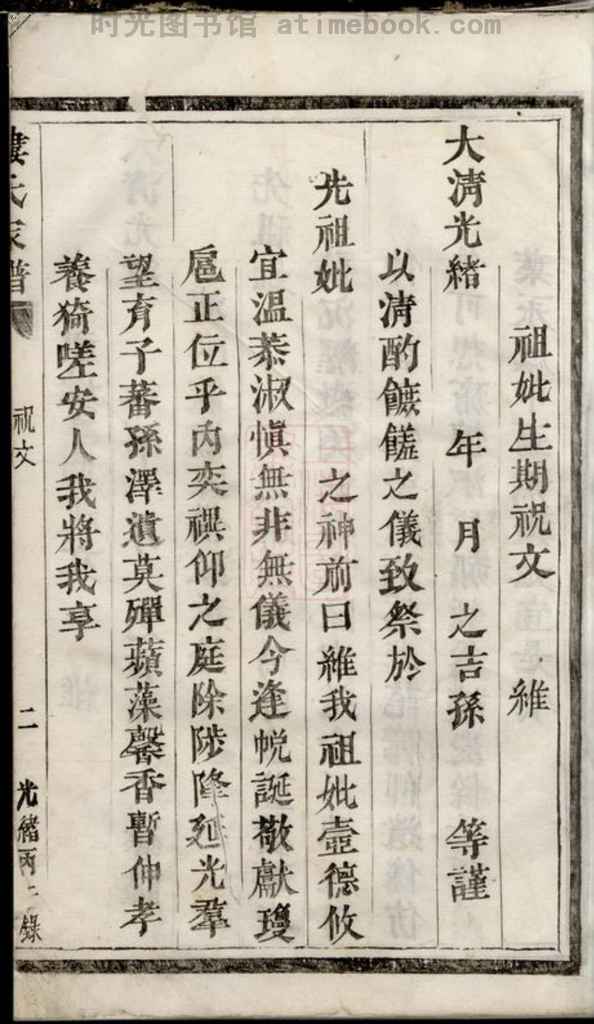 时光图书馆 atimebook.com
祖妣生期祝文 維
大清光緒 年 月 之吉孫 等謹
以清酌饝饈之儀致祭於
先祖妣 之神前曰維我祖妣壼德攸
宜温恭淑愼無非無儀今逢帨誕敬獻瓊
巵正位乎內奕禩仰之庭除陟降延光羣
望育子蕃孫澤遺莫殫蘋藻馨香暫伸孝
養猗嗟安人我將我享
婁氏家譜
祝文
二
光緒丙 錄